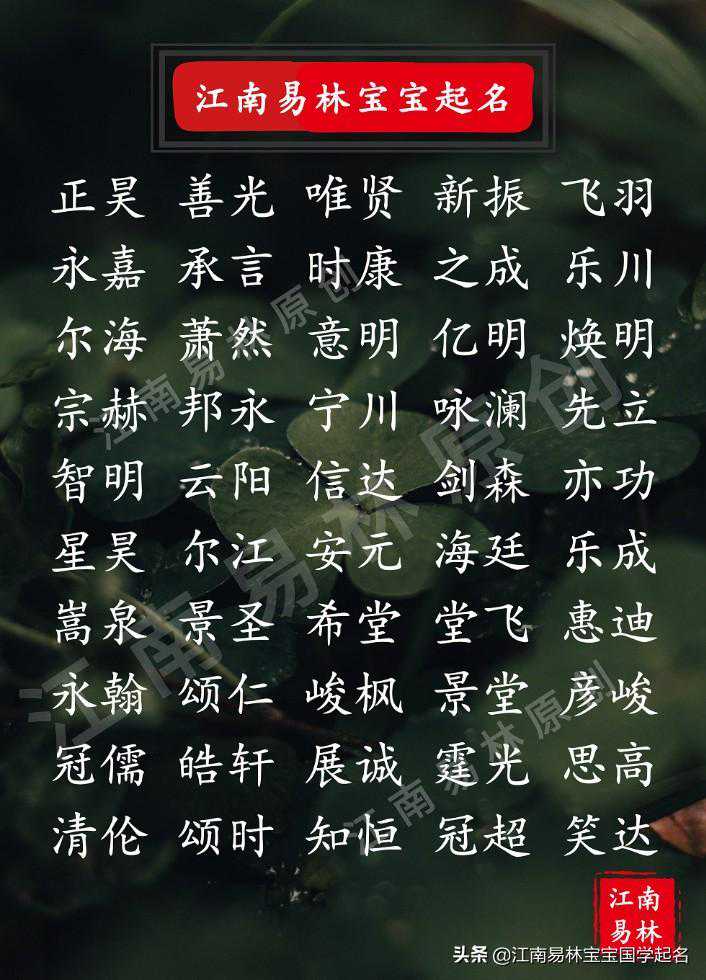 江南易林宝宝起名
正昊 善光 唯贤 新振 飞羽
永嘉 承言 时康 之成 乐川
尔海 萧然 意明 亿明 焕明
宗赫 邦永 宁川 咏澜 先立
智明 云阳 信达 剑森 亦功
星昊 尔江 安元 海廷 乐成
嵩泉 景圣 希堂 堂飞 惠迪
永翰 颂仁 峻枫 景堂 彦峻
冠儒 皓轩 展诚 霆光 思高
清伦 颂时 知恒 冠超 笑达
江南易林原创
江南易林原创
江南易林原创
江南
易林
头条 @江南易林宝宝国学起名